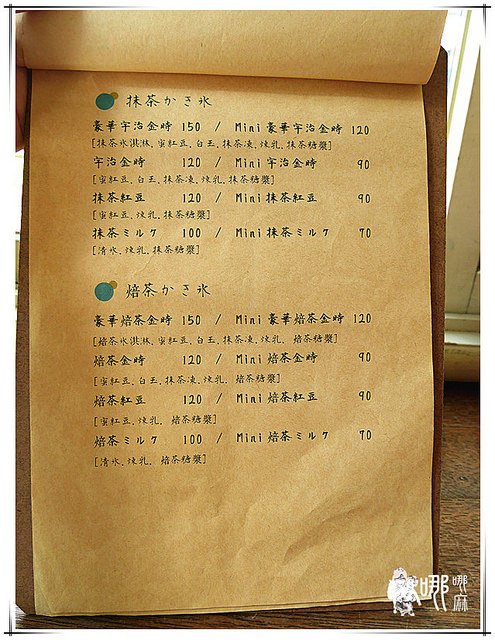 抹茶かき氷
豪華宇治金時 150 / Mini 豪華宇治金時 120
[抹茶冰淇淋.蜜紅豆.白玉.抹茶凍.煉乳.抹茶糖漿]
宇治金時 120 / Mini 宇治金時 90
[蜜紅豆.白玉.抹茶凍.煉乳.抹茶糖漿]
抹茶紅豆 120 / Mini 抹茶紅豆 90
[蜜紅豆.煉乳.抹茶糖漿]
抹茶ミルク 100 / Mini 抹茶ミルク 90
[清冰.煉乳.抹茶糖漿]
焙茶かき氷
豪華焙茶金時 150 / Mini 豪華焙茶金時 120
[焙茶冰淇淋.蜜紅豆.白玉.抹茶凍.煉乳. 焙茶糖漿]
焙茶金時 120 / Mini 焙茶金時 90
[蜜紅豆.白玉.抹茶凍.煉乳. 焙茶糖漿]
焙茶紅豆 120 / Mini 焙茶紅豆 90
[蜜紅豆.煉乳. 焙茶糖漿]
焙茶ミルク 100 / Mini 焙茶ミルク 90
[清冰.煉乳. 焙茶糖漿]
哪哪麻